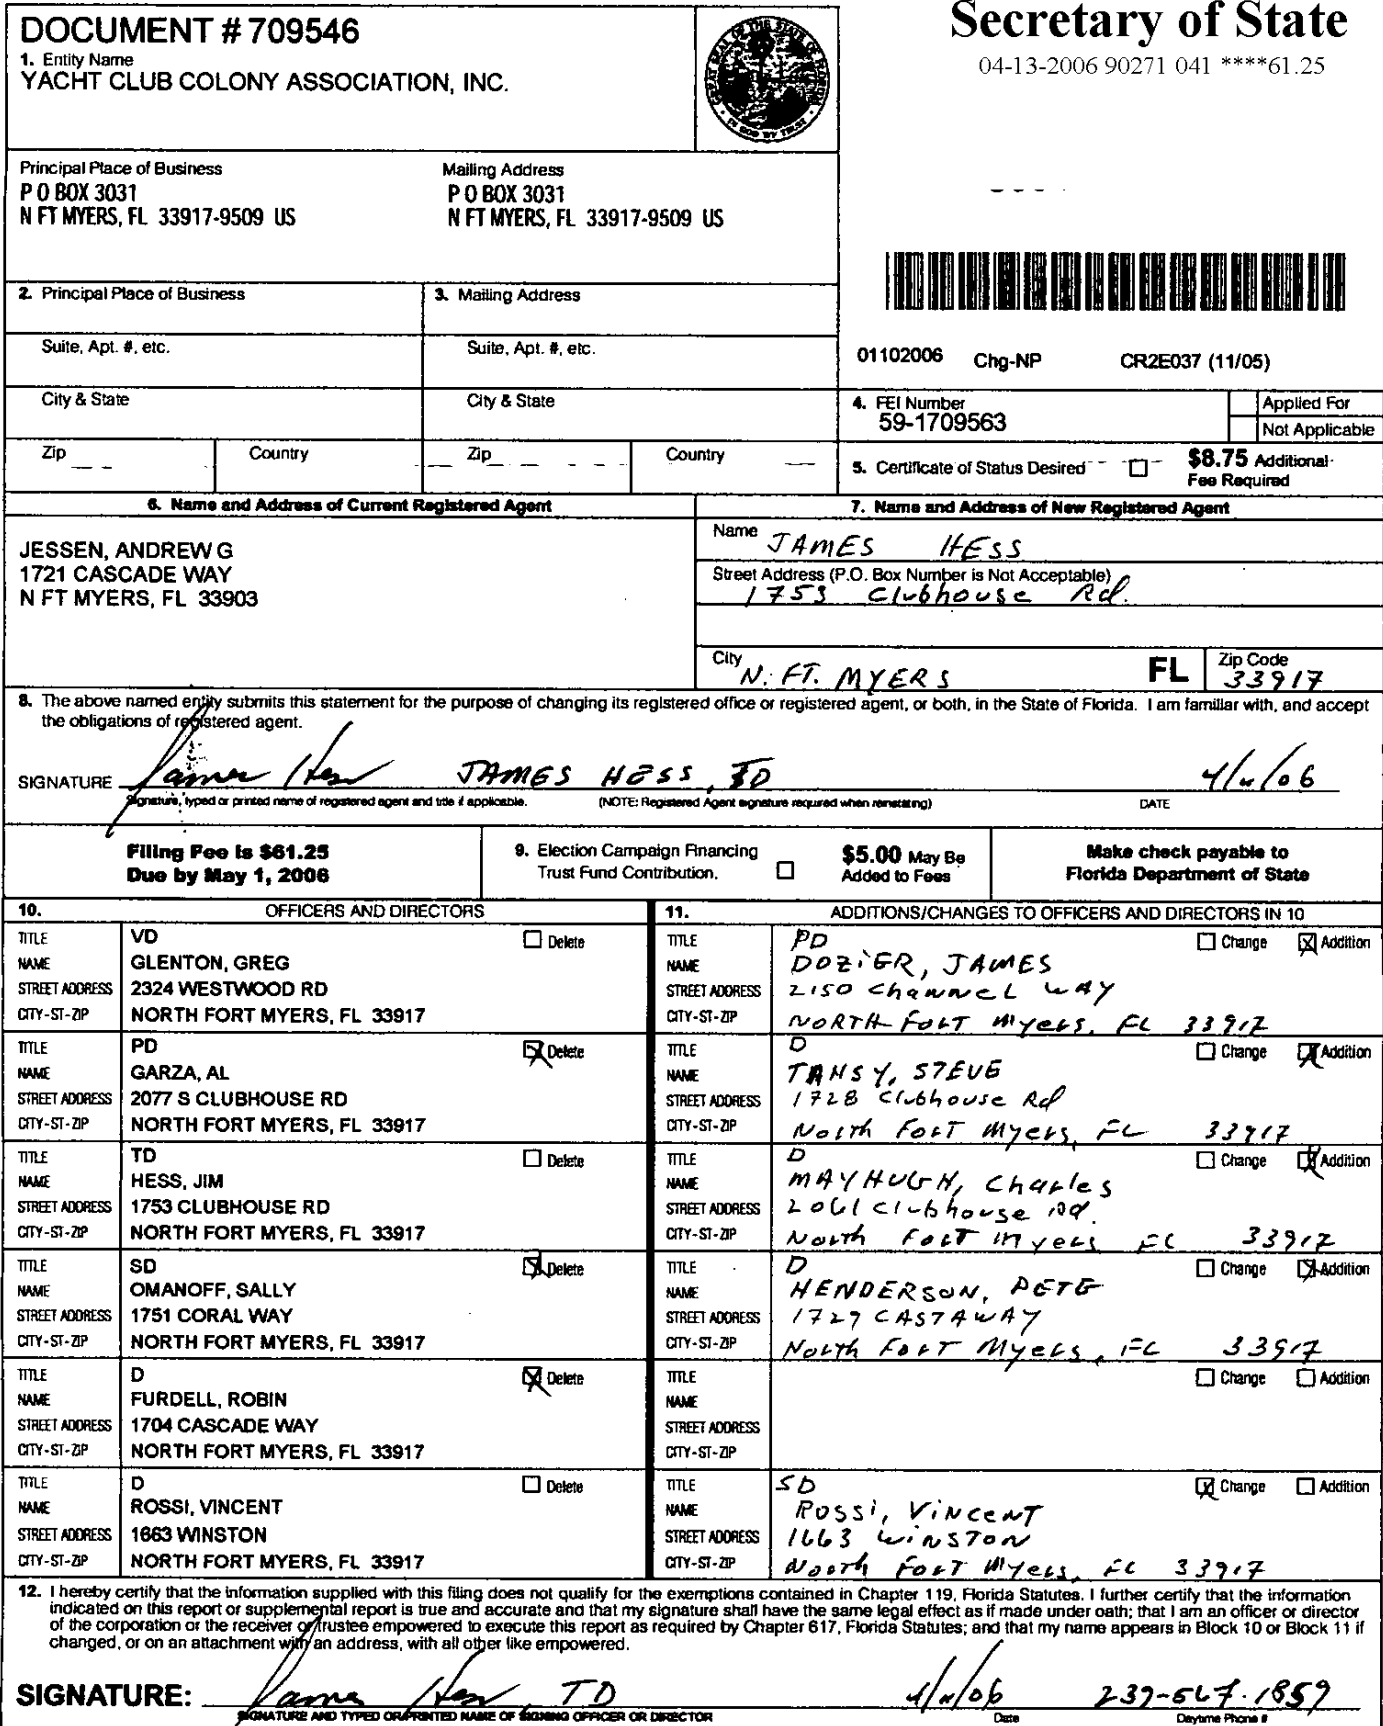 DOCUMENT # 709546
1. Entity Name
YACHT CLUB COLONY ASSOCIATION, INC.
Secretary of State
04-13-2006 90271 041 ****61.25
Principal Place of Business
P O BOX 3031
N FT MYERS, FL 33917-9509 US
Mailing Address
P O BOX 3031
N FT MYERS, FL 33917-9509 US
2. Principal Place of Business
3. Mailing Address
Suite, Apt. #, etc.
Suite, Apt. #, etc.
City & State
City & State
Zip
Country
Zip
Country
01102006 Chg-NP CR2E037 (11/05)
4. FEI Number
59-1709563
Applied For
Not Applicable
5. Certificate of Status Desired
$8.75 Additional
Fee Required
6. Name and Address of Current Registered Agent
JESSEN, ANDREW G
1721 CASCADE WAY
N FT MYERS, FL 33903
7. Name and Address of New Registered Agent
Name JAMES HESS
Street Address (P.O. Box Number is Not Acceptable)
1753 Clubhouse Rd.
City N. FT. MYERS FL Zip Code 33917
8. The above named entity submits this statement for the purpose of changing its registered office or registered agent, or both, in the State of Florida. I am familiar with, and accept
the obligations of registered agent.
SIGNATURE James Hess JAMES HESS, TD 4/11/06
Signature, typed or printed name of registered agent and title if applicable. (NOTE: Registered Agent signature required when reinstating) DATE
Filing Fee is $61.25
Due by May 1, 2006
9. Election Campaign Financing
Trust Fund Contribution.
$5.00 May Be
Added to Fees
Make check payable to
Florida Department of State
10. OFFICERS AND DIRECTORS
11. ADDITIONS/CHANGES TO OFFICERS AND DIRECTORS IN 10
TITLE VD Delete
NAME GLENTON, GREG
STREET ADDRESS 2324 WESTWOOD RD
CITY-ST-ZIP NORTH FORT MYERS, FL 33917
TITLE PD Change X Addition
NAME DOZIER, JAMES
STREET ADDRESS 2150 Channel WAY
CITY-ST-ZIP NORTH FORT Myers, FL 33917
TITLE PD X Delete
NAME GARZA, AL
STREET ADDRESS 2077 S CLUBHOUSE RD
CITY-ST-ZIP NORTH FORT MYERS, FL 33917
TITLE D Change X Addition
NAME TANSY, STEVE
STREET ADDRESS 1728 Clubhouse Rd
CITY-ST-ZIP North Fort Myers, FL 33917
TITLE TD Delete
NAME HESS, JIM
STREET ADDRESS 1753 CLUBHOUSE RD
CITY-ST-ZIP NORTH FORT MYERS, FL 33917
TITLE D Change X Addition
NAME MAYHUGH, Charles
STREET ADDRESS 2061 Clubhouse Rd.
CITY-ST-ZIP North Fort Myers FL 33917
TITLE SD X Delete
NAME OMANOFF, SALLY
STREET ADDRESS 1751 CORAL WAY
CITY-ST-ZIP NORTH FORT MYERS, FL 33917
TITLE D Change X Addition
NAME HENDERSON, PETE
STREET ADDRESS 1729 CASTAWAY
CITY-ST-ZIP North Fort Myers, FL 33917
TITLE D X Delete
NAME FURDELL, ROBIN
STREET ADDRESS 1704 CASCADE WAY
CITY-ST-ZIP NORTH FORT MYERS, FL 33917
TITLE Change Addition
NAME
STREET ADDRESS
CITY-ST-ZIP
TITLE D Delete
NAME ROSSI, VINCENT
STREET ADDRESS 1663 WINSTON
CITY-ST-ZIP NORTH FORT MYERS, FL 33917
TITLE SD X Change Addition
NAME Rossi, Vincent
STREET ADDRESS 1663 Winston
CITY-ST-ZIP North Fort Myers, FL 33917
12. I hereby certify that the information supplied with this filing does not qualify for the exemptions contained in Chapter 119, Florida Statutes. I further certify that the information
indicated on this report or supplemental report is true and accurate and that my signature shall have the same legal effect as if made under oath; that I am an officer or director
of the corporation or the receiver or trustee empowered to execute this report as required by Chapter 617, Florida Statutes; and that my name appears in Block 10 or Block 11 if
changed, or on an attachment with an address, with all other like empowered.
SIGNATURE: James Hess, TD 4/11/06 239-567-1859
SIGNATURE AND TYPED OR PRINTED NAME OF SIGNING OFFICER OR DIRECTOR Date Daytime Phone #